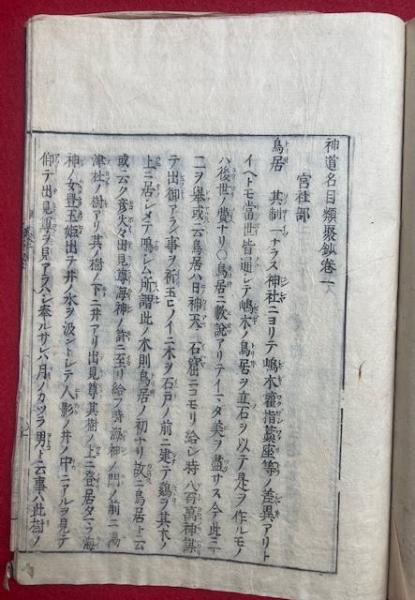 神道名目類聚鈔巻一
宮社部
鳥居 其制一ナラス神社ニヨリテ嶋木藿指藁座等ノ差異アリト
イヘトモ當世皆通シテ嶋木ノ鳥居ヲ立石ヲ以テ是ヲ作ルモノ
ハ後世ノ營ナリ○鳥居ニ数説アリテイマタ美ヲ盡サス今此ニ
二ヲ舉或云鳥居ハ日神天ノ石窟ニコモリ給シ時八百萬神謀
テ出御アラン事ヲ祈玉ヒノイニ木ヲ石戸ノ前ニ建テ鶏ヲ其木ノ
上ニ居シメテ鳴シム所謂此ノ木則鳥居ノ初ナリ故ニ鳥居ト云
或云ク彦火々出見尊海神ノ許ニ至リ給フ時海神ノ門ノ前ニ湯
津杜ノ樹アリ其ノ樹ノ下ニ井アリ出見尊其樹ノ上ニ登居タマヲ海
神ノ女豊玉姫出テ井ノ水ヲ汲ントシテ人影ノ井ノ中ニアルヲ見テ
仰テ出見尊ヲ見アラハシ奉ルサレハ月ノカツラ男ト云事ハ此樹ノ